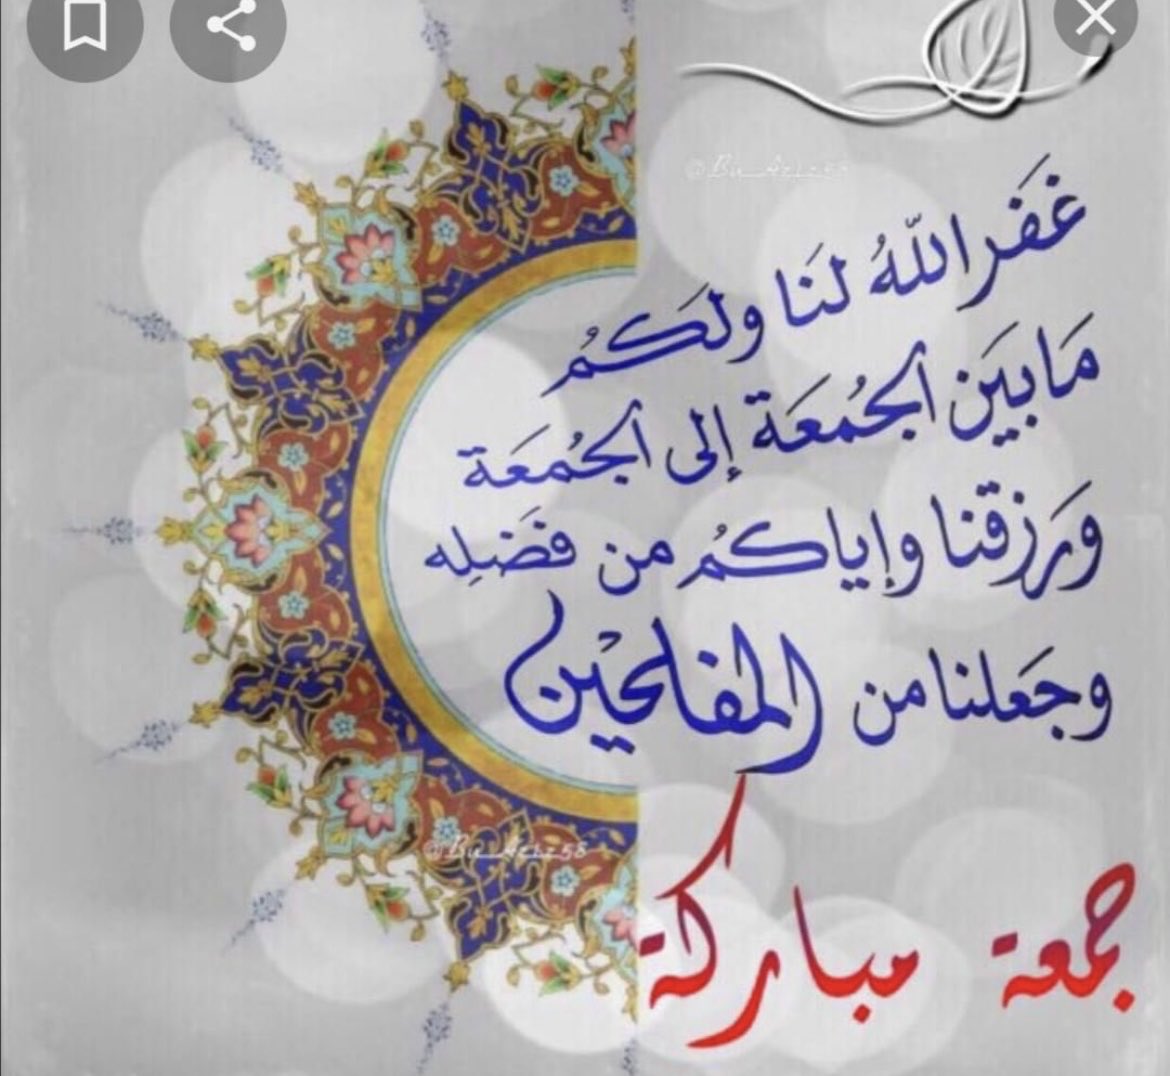 @Bu_Aziz58
غَفَر اللّهُ لنَا ولَكُم
مَا بَيَن الجُمعَة إلى الجُمعَة
ورَزقنا وإياكُم من فضَلِه
وجَعلنا من المفلحْين
@Bu_Aziz58
جمعة مباركة